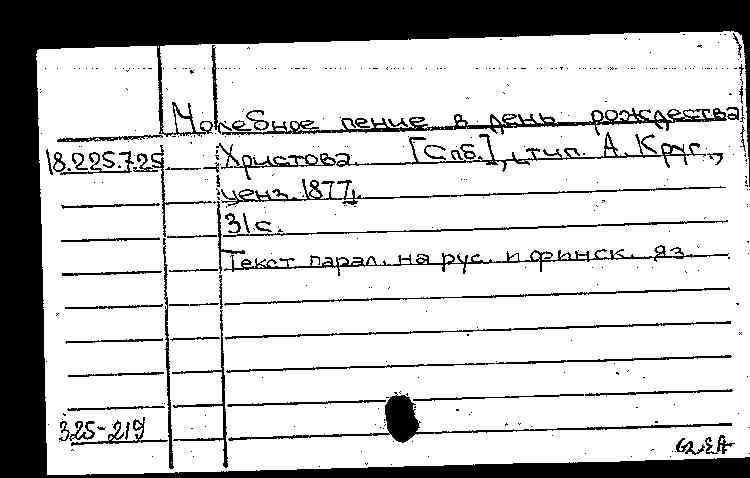 Молебное пение в день рождества
18.225.725 Христова. [Спб.], тип. А. Круг.,
ценз. 1877.
31 с.
Текст парал. на рус. и финск. яз.
325-219